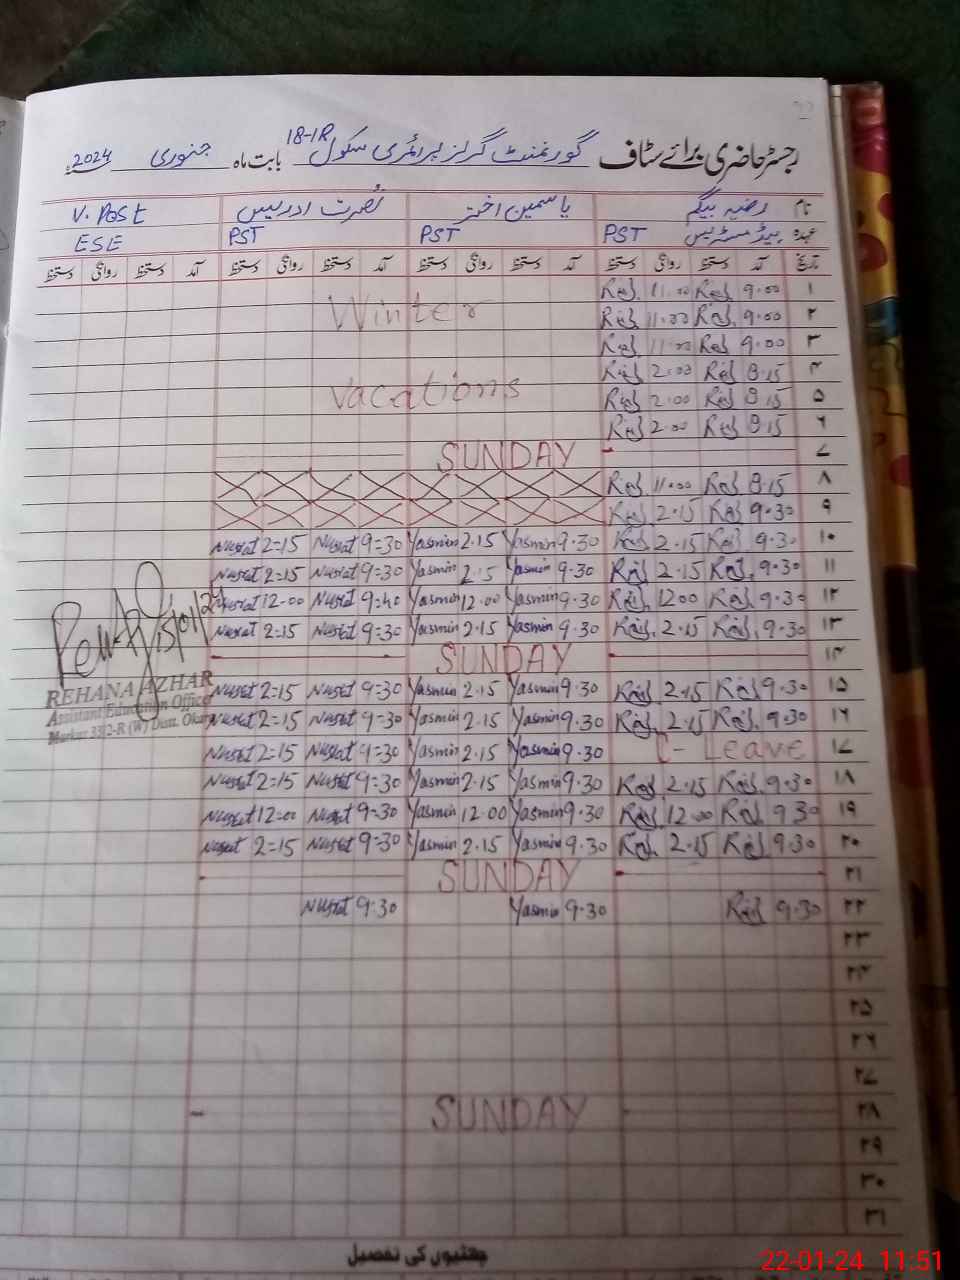 رجسٹر حاضری برائے سٹاف گورنمنٹ گرلز پرائمری سکول 18-1R بابت ماہ جنوری 2024ء
نام رضیہ بیگم یاسمین اختر نصرت ادریس V. Post
عہدہ ہیڈ مسٹریس PST PST PST ESE
تاریخ آمد دستخط روانگی دستخط آمد دستخط روانگی دستخط آمد دستخط روانگی دستخط آمد دستخط روانگی دستخط
۱ 9.00 11.00
Winter
۲ 9.00 11.00
۳ 9.00 11.00
۴ 8.15 2.00
Vacations
۵ 8.15 2.00
۶ 8.15 2.00
۷ SUNDAY
۸ 8.15 11.00
۹ 9.30 2.15
۱۰ 9.30 2.15 9.30 Yasmin 2.15 Yasmin 9=30 Nusrat 2=15 Nusrat
۱۱ 9.30 2.15 9.30 Yasmin 2.15 Yasmin 9=30 Nusrat 2=15 Nusrat
۱۲ 9.30 1200 9.30 Yasmin 12.00 Yasmin 9=40 Nusrat 12-00 Nusrat
۱۳ 9.30 2.15 9.30 Yasmin 2.15 Yasmin 9=30 Nusrat 2=15 Nusrat
۱۴ SUNDAY
15/01/24
REHANA AZHAR
Assistant Education Officer
Markaz 33/2-R (W) Distt. Okara
۱۵ 9.30 2.15 9.30 Yasmin 2.15 Yasmin 9=30 Nusrat 2=15 Nusrat
۱۶ 9.30 2.15 9.30 Yasmin 2.15 Yasmin 9=30 Nusrat 2=15 Nusrat
۱۷ C- Leave 9.30 Yasmin 2.15 Yasmin 9=30 Nusrat 2=15 Nusrat
۱۸ 9.30 2.15 9.30 Yasmin 2.15 Yasmin 9=30 Nusrat 2=15 Nusrat
۱۹ 9 30 12.00 9.30 Yasmin 12.00 Yasmin 9=30 Nusrat 12=00 Nusrat
۲۰ 9.30 2.15 9.30 Yasmin 2.15 Yasmin 9=30 Nusrat 2=15 Nusrat
۲۱ SUNDAY
۲۲ 9.30 9.30 Yasmin 9.30 Nusrat
۲۳
۲۴
۲۵
۲۶
۲۷
۲۸ SUNDAY
۲۹
۳۰
۳۱
چھٹیوں کی تفصیل
22-01-24 11:51